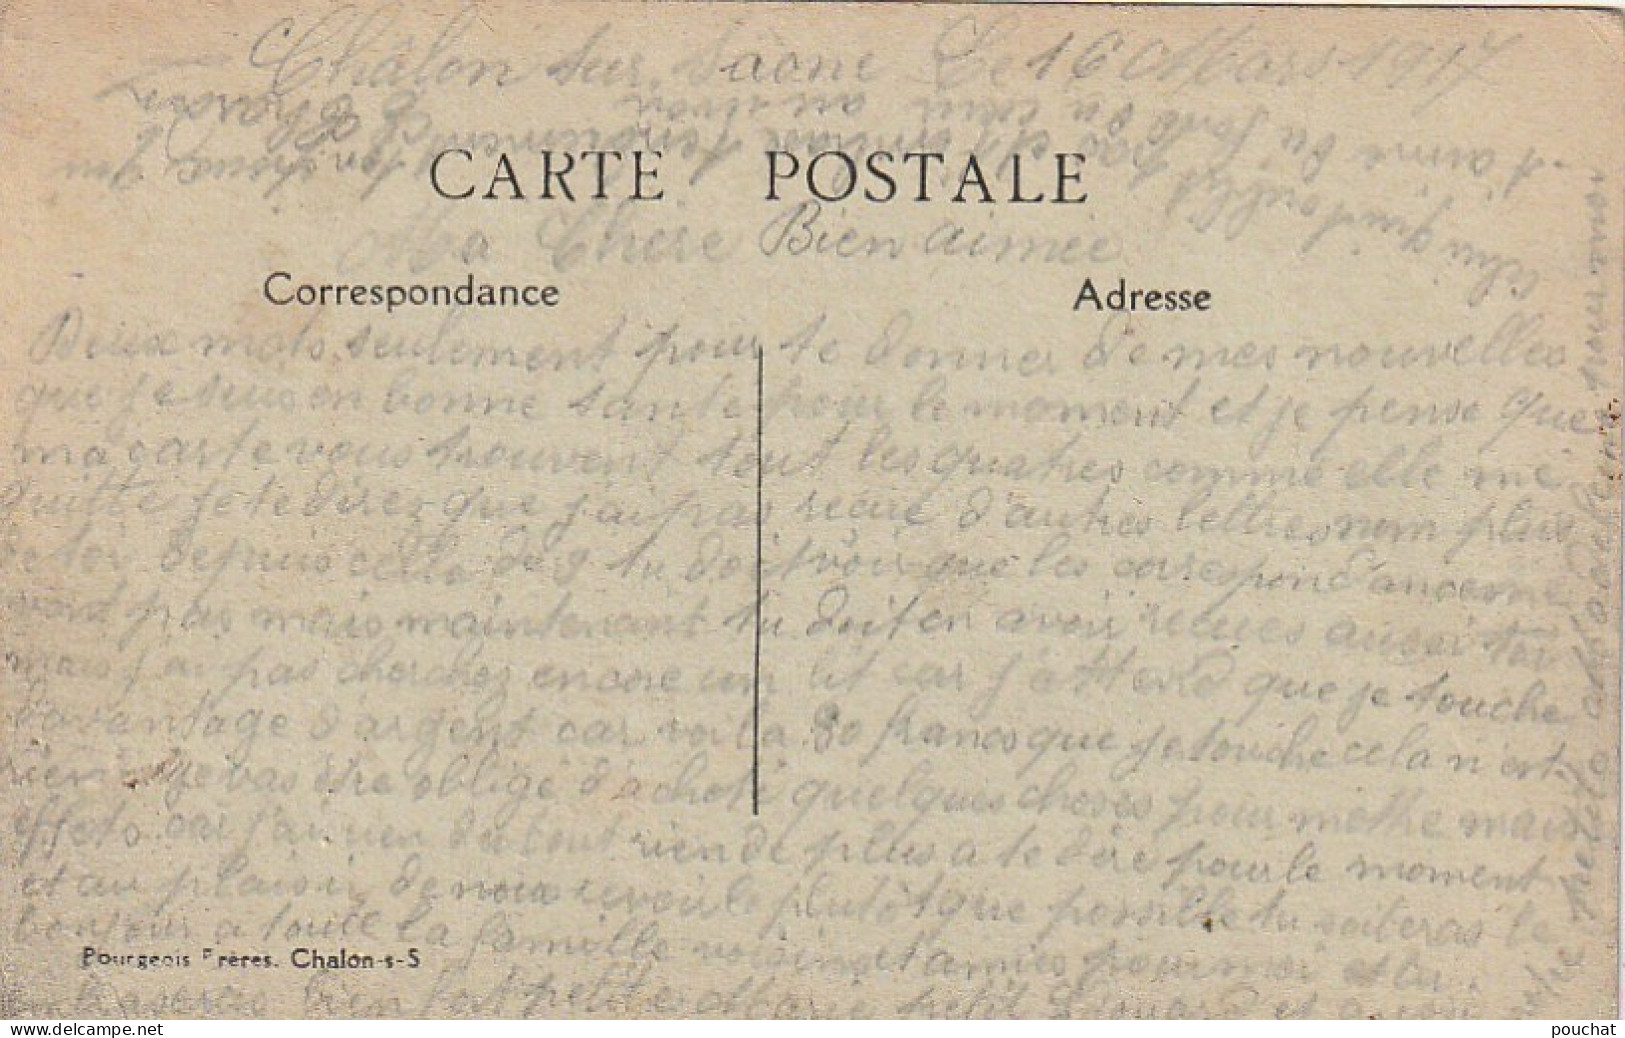 Châlon sur Saone Le 16 Mars 1917
CARTE POSTALE
Ma Chere Bien aimée
Correspondance
Adresse
Deux mots seulement pour te donner de mes nouvelles
que je suis en bonne sante pour le moment et je pense que
ma carte vous trouvent tout les quatres comme elle me
quitte je te direr que j'ai pas recue d'autres lettres nom plus
de toi depuis celle du 9 tu doit voir que les correspond'ance ne
vont pas mais maintenant tu doit en avoir recues aussi toi
mais j'ai pas cherchez encore un lit car j'attend que je touche
davantage d'argent car voila 80 francs que je touche cela n'est
rien je vas être obligé d'acheté quelques choses pour mettre mais
effets car j'ai rien du tout rien de plus a te dire pour le moment
et au plaisir de nous revoir le plutôt que possible tu soiteras le
bonjour a toute la famille voisins et amies pour moi et tu
Pourgeois Frères. Chalon-s-S
embrasseras bien fort petite Marie petit Edouard et
qui t'aime du fond du cœur au revoir